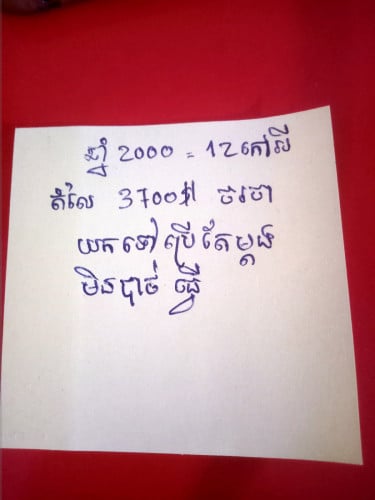 ឆ្នាំ 2000 = 12កៅលី
តំលៃ 3700$ ចរចា
យកទៅប្រើតែម្តង
មិនបាច់ ធ្វើ